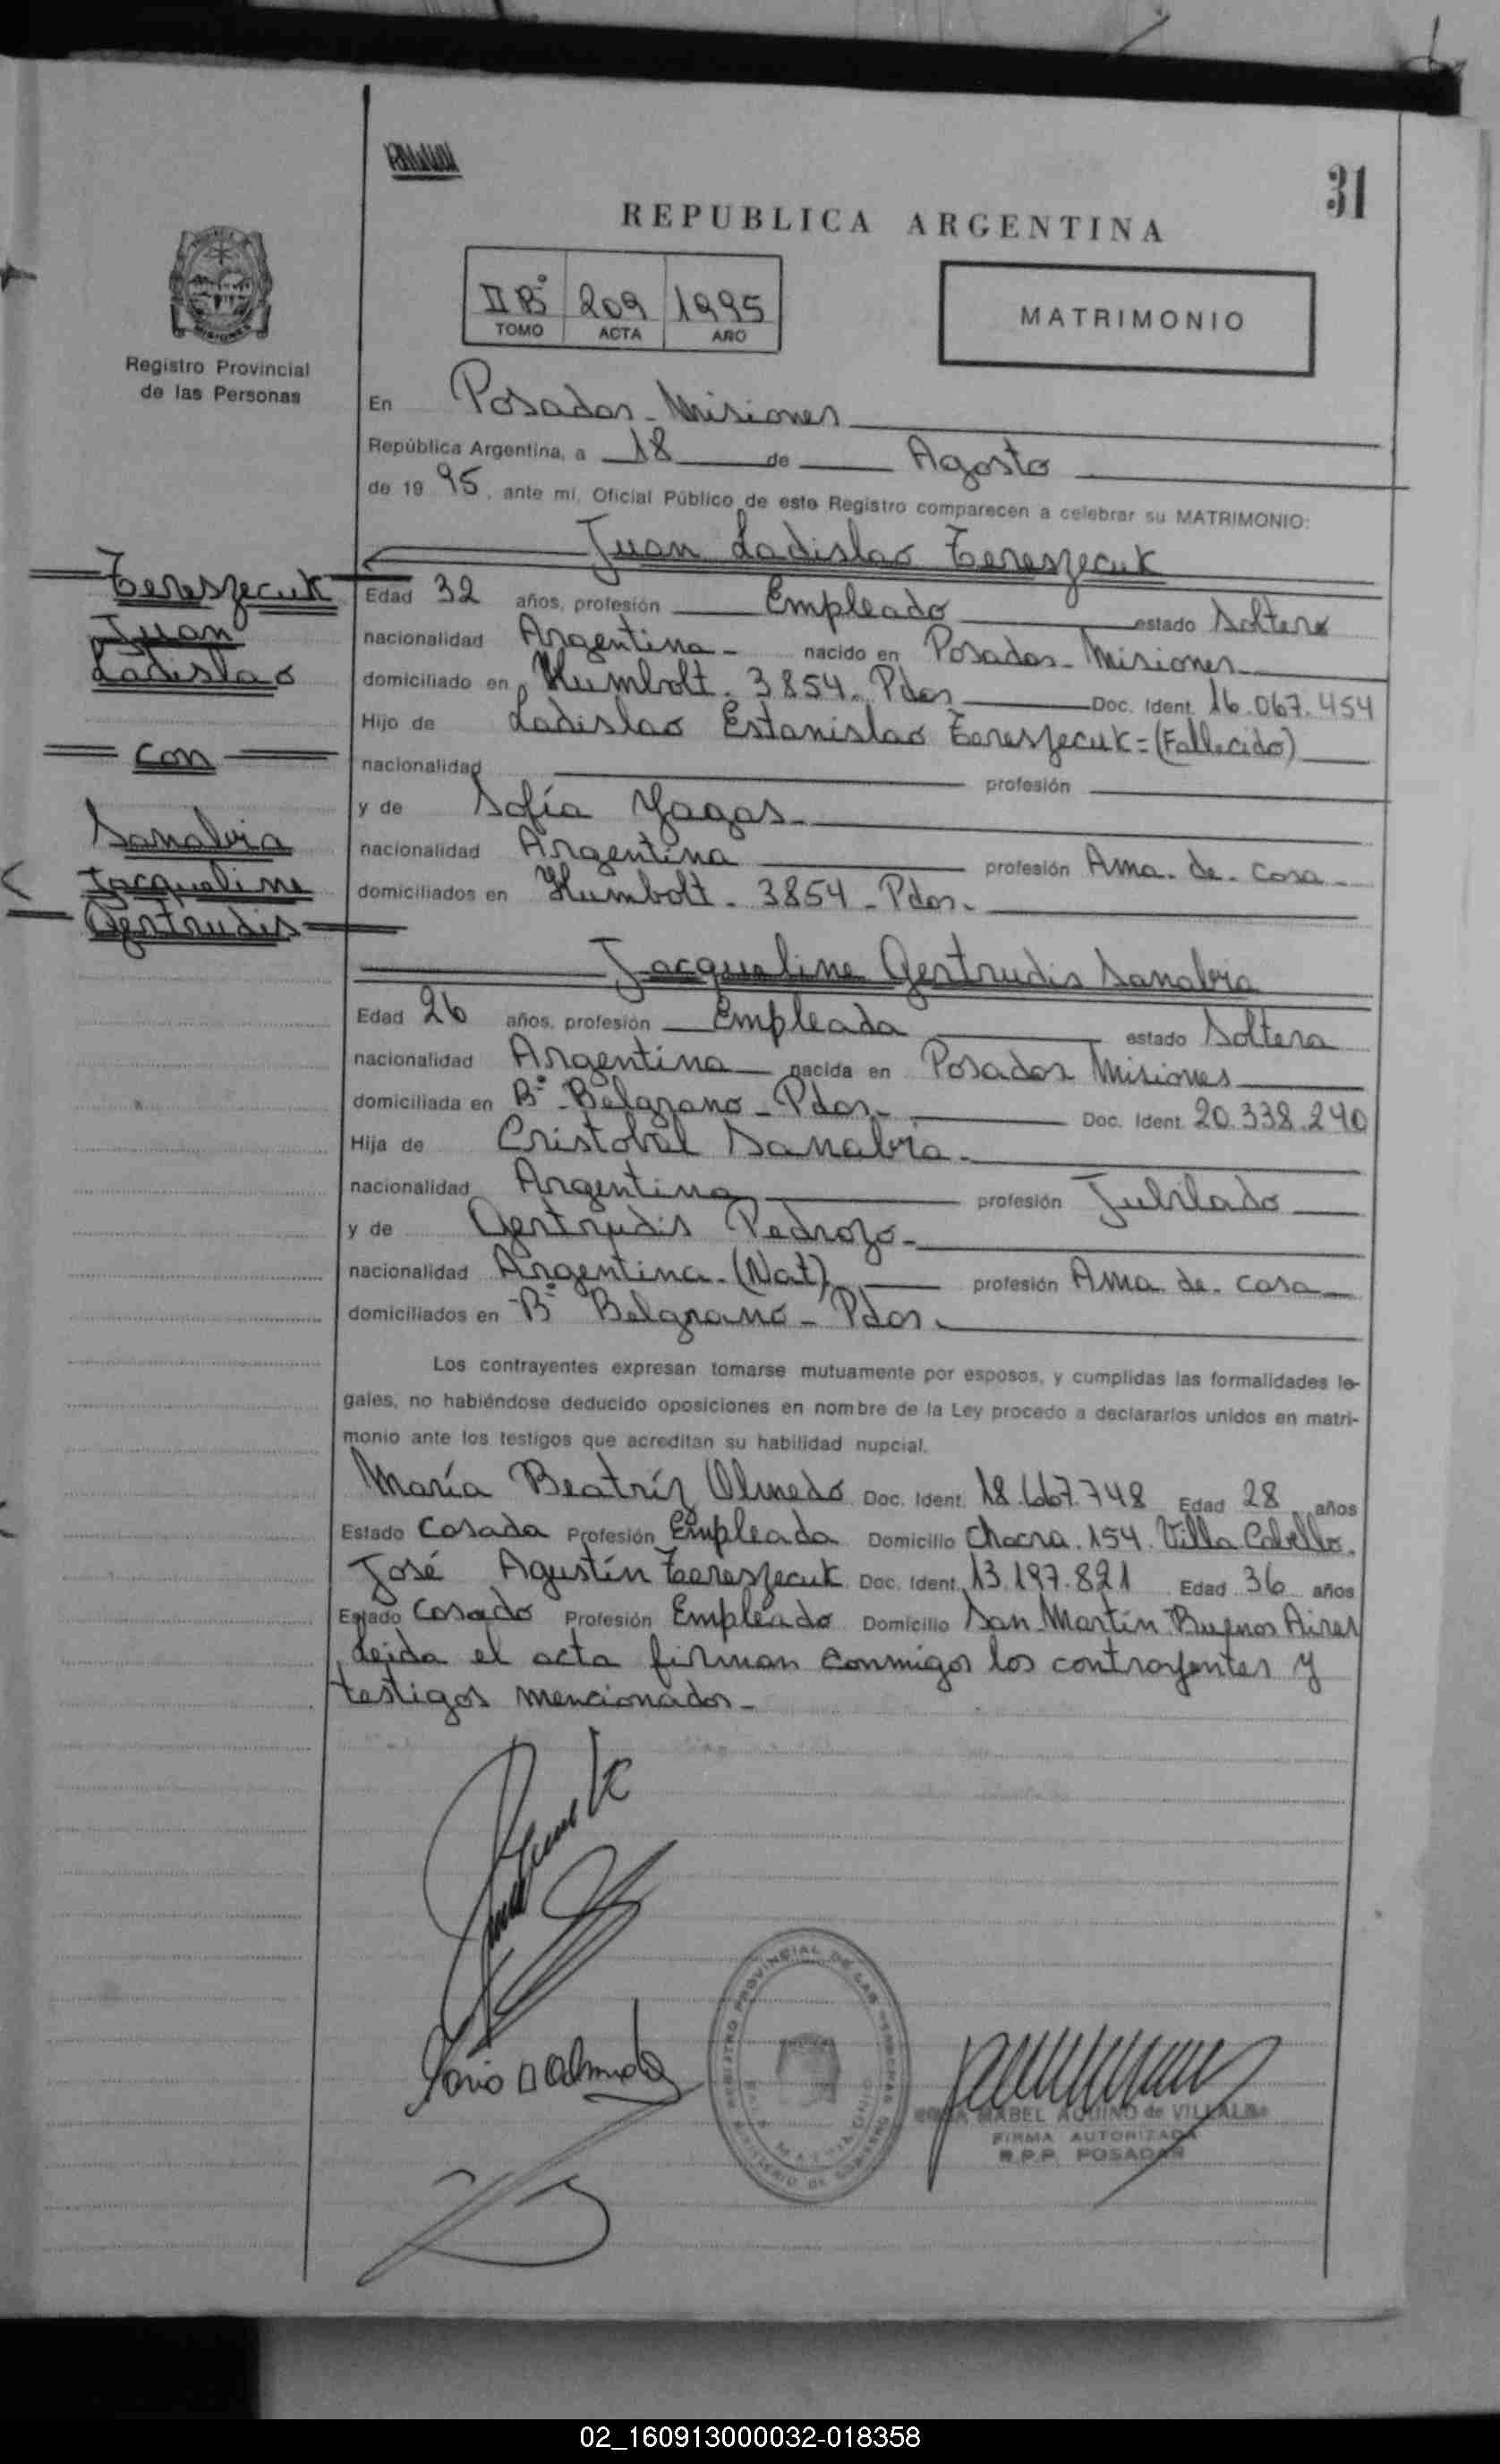 31
REPUBLICA ARGENTINA
II Bº 209 1995
TOMO ACTA AÑO
MATRIMONIO
Registro Provincial
de las Personas
En Posadas - Misiones
República Argentina, a 18 de Agosto
de 1995, ante mí, Oficial Público de este Registro comparecen a celebrar su MATRIMONIO:
Juan Ladislao Tereszecuk
Tereszecuk
Juan
Ladislao
con
Sanabria
Jacqueline
Gertrudis
Edad 32 años, profesión Empleado estado Soltero
nacionalidad Argentina - nacido en Posadas - Misiones
domiciliado en Humbolt - 3854 - Pdas Doc. Ident. 16.067.454
Hijo de Ladislao Estanislao Tereszecuk = (Fallecido)
nacionalidad profesión
y de Sofía Yagas -
nacionalidad Argentina profesión Ama. de. casa -
domiciliados en Humbolt - 3854 - Pdas -
Jacqueline Gertrudis Sanabria
Edad 26 años, profesión Empleada estado Soltera
nacionalidad Argentina nacida en Posadas Misiones
domiciliada en Bº - Belgrano - Pdas - Doc. Ident. 20.338.240
Hija de Cristobal Sanabria -
nacionalidad Argentina profesión Jubilado
y de Gertrudis Pedrozo -
nacionalidad Argentina - (Nat) profesión Ama. de. casa
domiciliados en Bº Belgrano - Pdas.
Los contrayentes expresan tomarse mutuamente por esposos, y cumplidas las formalidades le-
gales, no habiéndose deducido oposiciones en nombre de la Ley procedo a declararlos unidos en matri-
monio ante los testigos que acreditan su habilidad nupcial.
María Beatríz Olmedo Doc. Ident. 18.667.748 Edad 28 años
Estado Casada Profesión Empleada Domicilio Chacra. 154. Villa Cabello.
José Agustín Tereszecuk Doc. Ident. 13.197.821 Edad 36 años
Estado Casado Profesión Empleado Domicilio San Martín Buenos Aires
Leida el acta firman conmigos los contrayentes y
testigos mencionados -
REGISTRO PROVINCIAL DE LAS PERSONAS
MINISTERIO DE GOBIERNO
SALA MATRIMONIO
MABEL AQUINO de VILLALBA
FIRMA AUTORIZADA
R.P.P. POSADAS
02_160913000032-018358